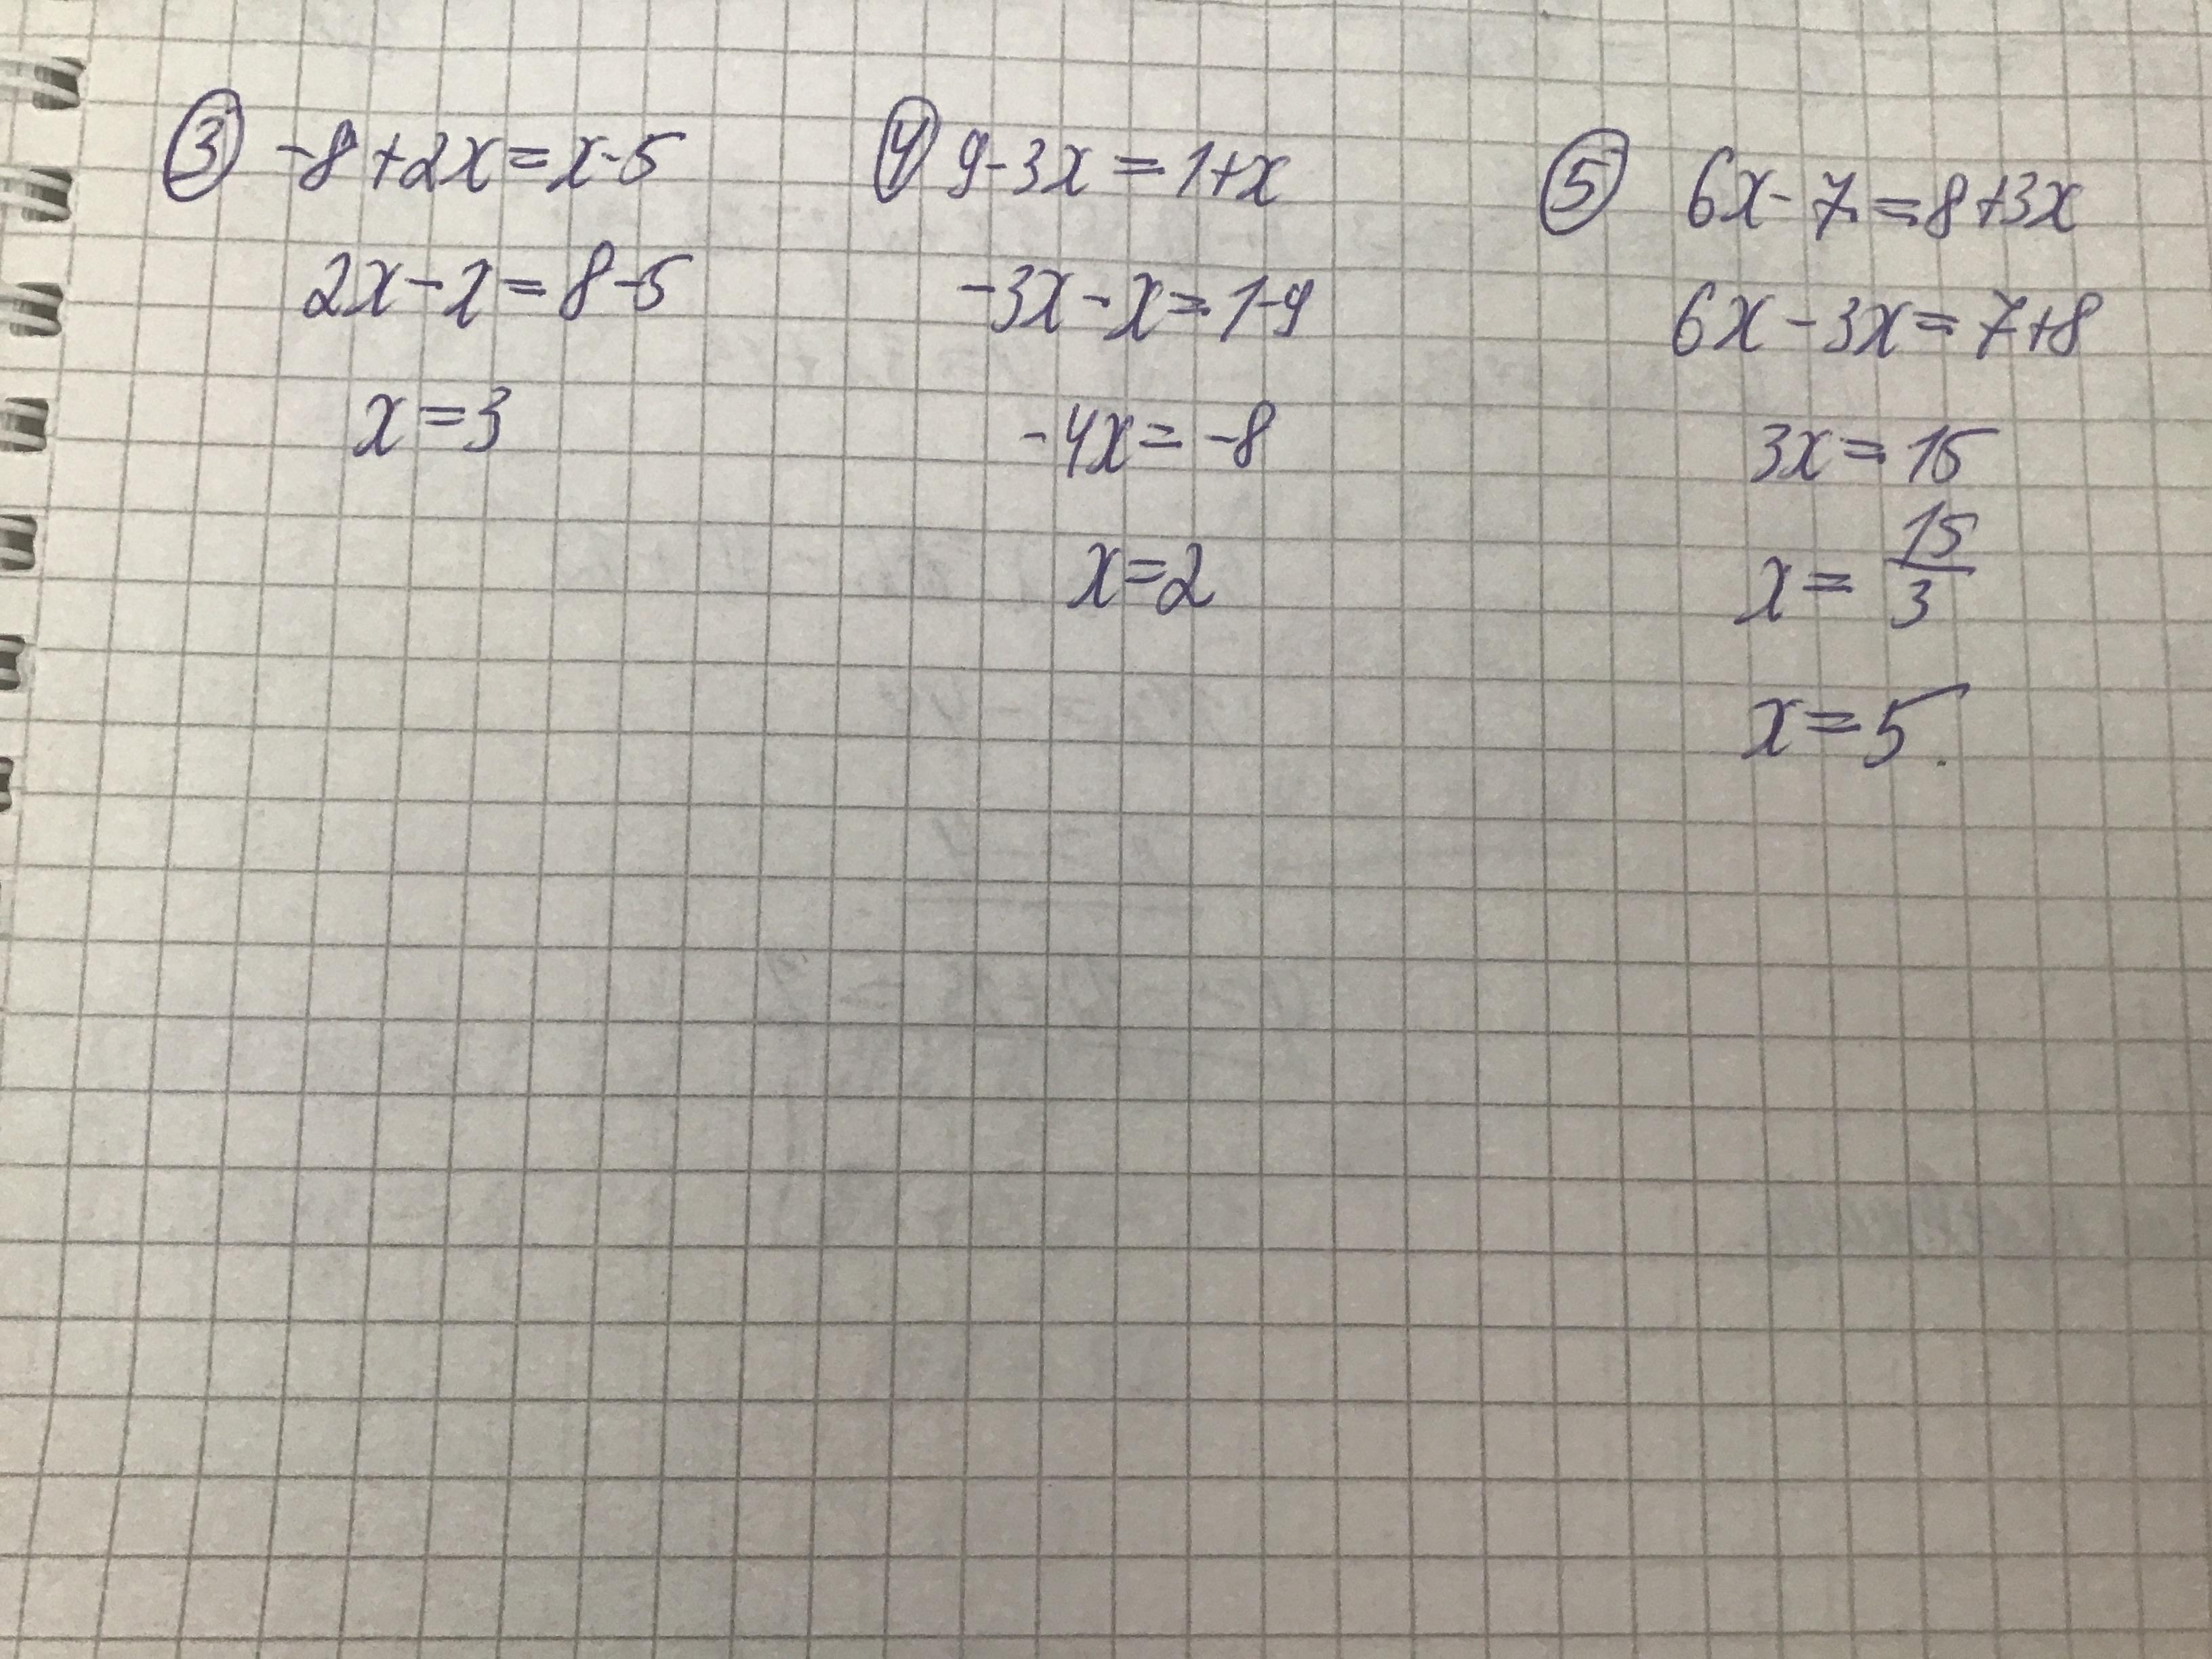 ③ -8+2x=x-5
2x-x=8-5
x=3
④ 9-3x=1+x
-3x-x=1-9
-4x=-8
x=2
⑤ 6x-7=8+3x
6x-3x=7+8
3x=15
x=15/3
x=5.